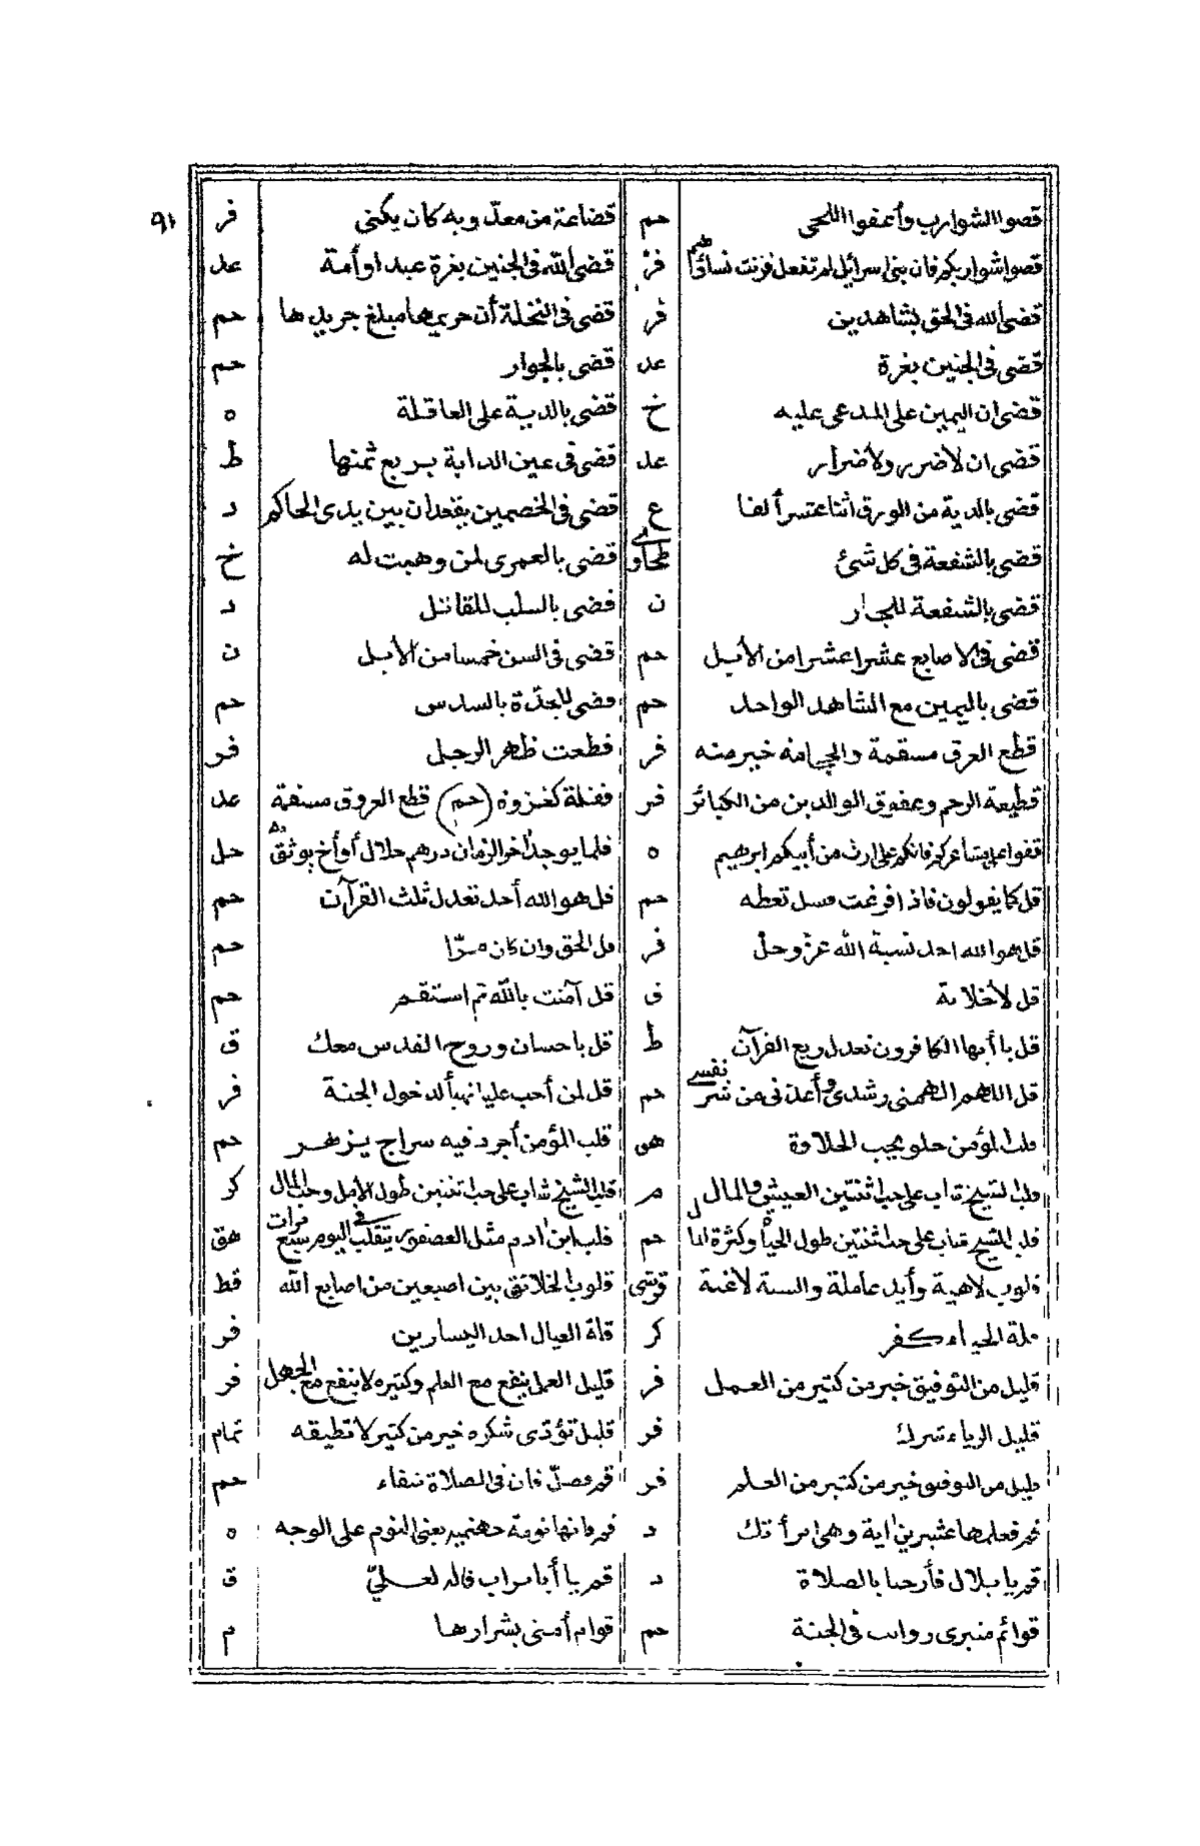 ٩١
قصوا الشوارب وأعفوا اللحى حم قضاعة من معدّ وبه كان يكنى فر
قصوا شواربكم فان بنى اسرائيل لم تفعل فزنت نساؤهم فر قضى الله فى الجنين بغرة عبد او أمة عد
قضى الله فى الحق بشاهدين فر قضى فى النخلة أن حريمها مبلغ جريدها حم
قضى فى الجنين بغرة عد قضى بالجوار حم
قضى ان اليمين على المدعى عليه خ قضى بالدية على العاقلة ه
قضى ان لا ضرر ولا ضرار عد قضى فى عين الدابة بربع ثمنها ط
قضى بالدية من الورق اثنا عشر ألفا ع قضى فى الخصمين يقعدان بين يدى الحاكم د
قضى بالشفعة فى كل شئ طحاوى قضى بالعمرى لمن وهبت له خ
قضى بالشفعة للجار ن قضى بالسلب للقاتل د
قضى فى الاصابع عشرا عشرا من الأبل حم قضى فى السن خمسا من الأبل ن
قضى باليمين مع الشاهد الواحد حم قضى للجدّة بالسدس حم
قطع العرق مسقمة والحجامة خير منه فر قطعت ظهر الرجل فر
قطيعة الرحم وعقوق الوالدين من الكبائر فر قفلة كغزوه (حم) قطع العروق مسقمة عد
قفوا على مشاعركم فانكم على ارث من أبيكم ابرهيم ه قلما يوجد اخر الزمان درهم حلال أو أخ يوثق به حل
قل كما يقولون فاذا فرغت فسل تعطه حم قل هو الله أحد تعدل ثلث القرآن حم
قل هو الله احد نسبة الله عزّ وجلّ فر قل الحق وان كان مرّا حم
قل لا خلابة ق قل آمنت بالله ثم استقم حم
قل يا أيها الكافرون تعدل ربع القرآن ط قل يا حسان وروح القدس معك ق
قل اللهم الهمنى رشدى وأعذنى من شر نفسى حم قل لمن أحب عليا تهيأ لدخول الجنة فر
قلب المؤمن حلو يحب الحلاوة هق قلب المؤمن أجرد فيه سراج يزهر حم
قلب الشيخ شاب على حب اثنتين العيش والمال م قلب الشيخ شاب على حب اثنتين طول الامل وحب المال كر
قلب الشيخ شاب على حب اثنتين طول الحيأة وكثرة المال حم قلب ابن ادم مثل العصفور يتقلب فى اليوم سبع مرات هق
قلوب لاهية وأيد عاملة والسنة لاغية قلوب الخلائق بين اصبعين من اصابع الله قط
قلة الحياء كفر كر قلة العيال احد اليسارين فر
قليل من التوفيق خير من كثير من العمل فر قليل العمل ينفع مع العلم وكثيره لا ينفع مع الجهل فر
قليل الرياء شرك فر قليل تؤدى شكره خير من كثير لا تطيقه تمام
قليل من التوفيق خير من كثير من العلم فر قم فصلّ فان فى الصلاة شفاء حم
قم فعلمها عشرين اية وهى امرأتك د قم فانها نومة جهنمية يعنى النوم على الوجه ه
قم يا بلال فأرحنا بالصلاة د قم يا أبا تراب قاله لعلىّ ق
قوائم منبرى رواتب فى الجنة حم قوام أمتى بشرارها م